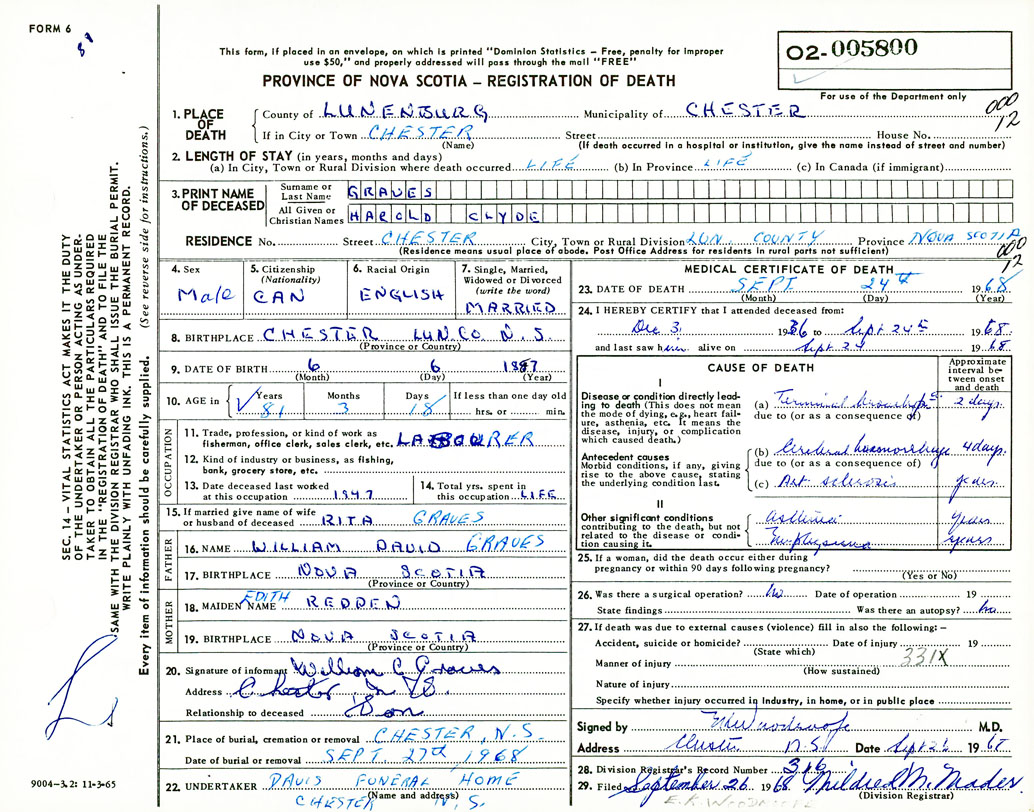 FORM 6
81
This form, if placed in an envelope, on which is printed "Dominion Statistics – Free, penalty for improper
use $50," and properly addressed will pass through the mail "FREE"
PROVINCE OF NOVA SCOTIA – REGISTRATION OF DEATH
02-005800
For use of the Department only
000
12
1. PLACE OF DEATH County of LUNENBURG Municipality of CHESTER
If in City or Town CHESTER Street House No.
(Name) (If death occurred in a hospital or institution, give the name instead of street and number)
2. LENGTH OF STAY (in years, months and days)
(a) In City, Town or Rural Division where death occurred LIFE (b) In Province LIFE (c) In Canada (if immigrant)
3. PRINT NAME OF DECEASED Surname or Last Name GRAVES
All Given or Christian Names HAROLD CLYDE
RESIDENCE No. Street CHESTER City, Town or Rural Division LUN. COUNTY Province NOVA SCOTIA
(Residence means usual place of abode. Post Office Address for residents in rural parts not sufficient)
000
12
4. Sex Male
5. Citizenship (Nationality) CAN
6. Racial Origin ENGLISH
7. Single, Married, Widowed or Divorced (write the word) MARRIED
8. BIRTHPLACE CHESTER LUN.CO N.S
(Province or Country)
9. DATE OF BIRTH 6 6 1887
(Month) (Day) (Year)
10. AGE in Years 81 Months 3 Days 18 If less than one day old
hrs. or min.
OCCUPATION
11. Trade, profession, or kind of work as
fisherman, office clerk, sales clerk, etc. LABOURER
12. Kind of industry or business, as fishing,
bank, grocery store, etc.
13. Date deceased last worked
at this occupation 1947
14. Total yrs. spent in
this occupation LIFE
15. If married give name of wife
or husband of deceased RITA GRAVES
FATHER
16. NAME WILLIAM DAVID GRAVES
17. BIRTHPLACE NOVA SCOTIA
(Province or Country)
MOTHER
18. MAIDEN NAME EDITH REDDEN
19. BIRTHPLACE NOVA SCOTIA
(Province or Country)
20. Signature of informant William C Graves
Address Chester N.S.
Relationship to deceased Son
21. Place of burial, cremation or removal CHESTER, N.S.
Date of burial or removal SEPT. 27th, 1968
22. UNDERTAKER DAVIS FUNERAL HOME
(Name and address)
CHESTER N.S.
MEDICAL CERTIFICATE OF DEATH
23. DATE OF DEATH SEPT 24th 1968
(Month) (Day) (Year)
24. I HEREBY CERTIFY that I attended deceased from:
Dec 3 1936 to Sept 24th 1968
and last saw him alive on Sept 24 1968
CAUSE OF DEATH
Approximate interval between onset and death
I
Disease or condition directly leading to death (This does not mean the mode of dying, e.g., heart failure, asthenia, etc. It means the disease, injury, or complication which caused death.)
(a) Terminal 2 days
due to (or as a consequence of)
Antecedent causes
Morbid conditions, if any, giving rise to the above cause, stating the underlying condition last.
(b) Cerebral haemorrhage 4 days
due to (or as a consequence of)
(c) Art sclerosis years
II
Other significant conditions
contributing to the death, but not related to the disease or condition causing it.
Asthma years
Emphysema years
25. If a woman, did the death occur either during
pregnancy or within 90 days following pregnancy?
(Yes or No)
26. Was there a surgical operation? No Date of operation 19
State findings Was there an autopsy? No
27. If death was due to external causes (violence) fill in also the following: –
Accident, suicide or homicide? Date of injury 19
(State which)
331X
Manner of injury
(How sustained)
Nature of injury
Specify whether injury occurred in Industry, in home, or in public place
Signed by M.D.
Address Chester N.S. Date Sept 26 1968
28. Division Registrar's Record Number 316
29. Filed September 26 1968 Mildred M. Mader
(Division Registrar)
SEC. 14 – VITAL STATISTICS ACT MAKES IT THE DUTY
OF THE UNDERTAKER OR PERSON ACTING AS UNDER-
TAKER TO OBTAIN ALL THE PARTICULARS REQUIRED
IN THE "REGISTRATION OF DEATH" AND TO FILE THE
SAME WITH THE DIVISION REGISTRAR WHO SHALL ISSUE THE BURIAL PERMIT.
WRITE PLAINLY WITH UNFADING INK. THIS IS A PERMANENT RECORD.
Every item of information should be carefully supplied. (See reverse side for instructions.)
9004-3.2: 11-3-65